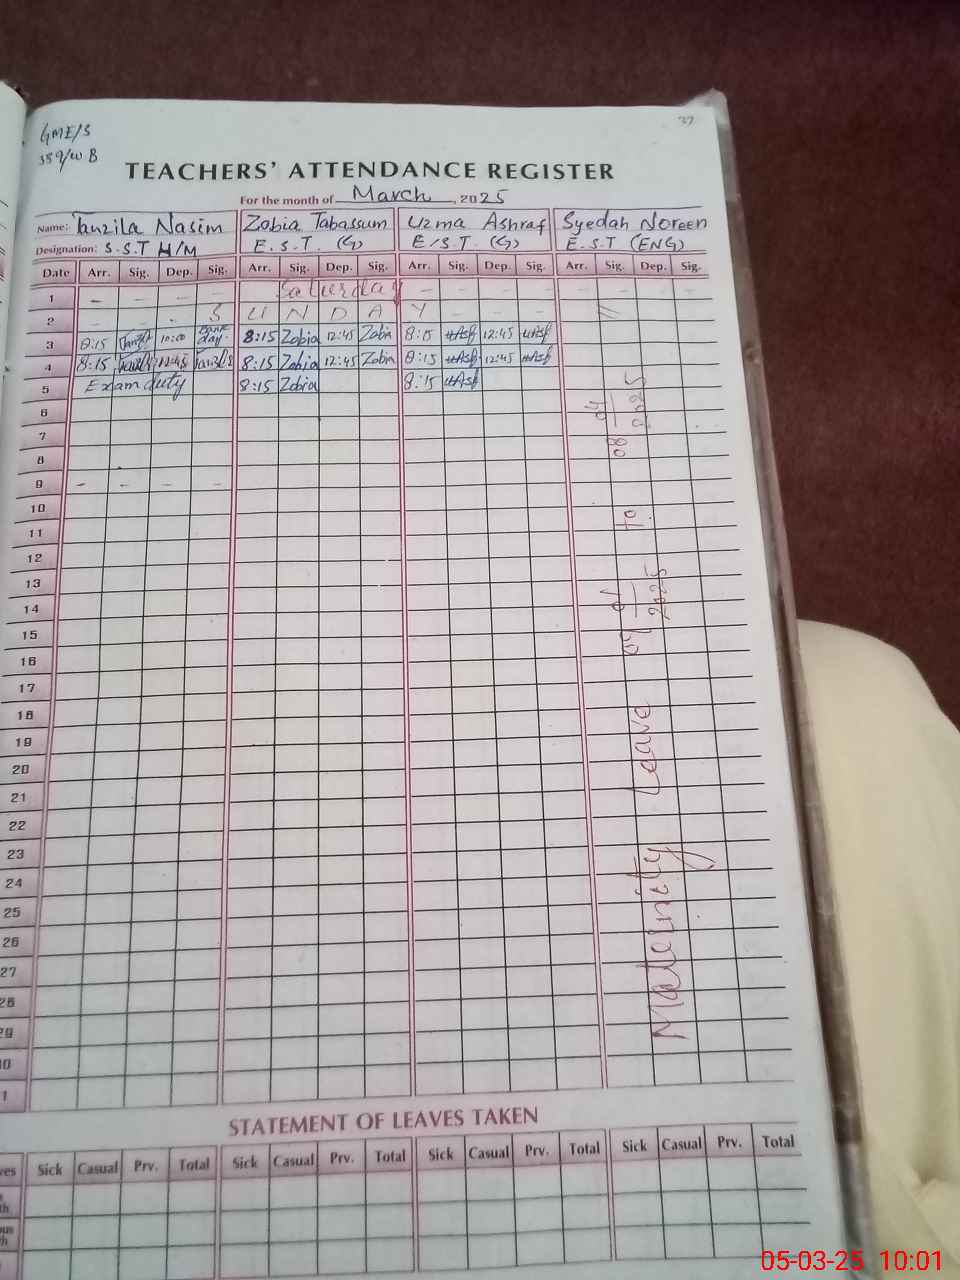 37
GME/S
389/W B
TEACHERS' ATTENDANCE REGISTER
For the month of March, 2025
Name: Tanzila Nasim Zobia Tabassum Uzma Ashraf Syedah Noreen
Designation: S.S.T H/M E.S.T. (G) E/S.T. (G) E.S.T (ENG)
Date Arr. Sig. Dep. Sig. Arr. Sig. Dep. Sig. Arr. Sig. Dep. Sig. Arr. Sig. Dep. Sig.
1 - - - - Saturday - - - - - - -
2 - - - S U N D A Y - - - "
3 8:15 10:00 day. 8:15 Zobia 12:45 Zobia 8:15 uAsf 12:45 uAsf
4 8:15 12:45 8:15 Zobia 12:45 Zobia 8:15 uAsf 12:45 uAsf
5 Exam duty 8:15 Zobia 8:15 uAsf
6
7
8
9 - - - -
10
11
12
13
14
15
16
17
18
19
20
21
22
23
24
25
26
27
28
29
Maternity Leave 01/2025 to 08 04/2025
STATEMENT OF LEAVES TAKEN
Sick Casual Prv. Total Sick Casual Prv. Total Sick Casual Prv. Total Sick Casual Prv. Total
05-03-25 10:01